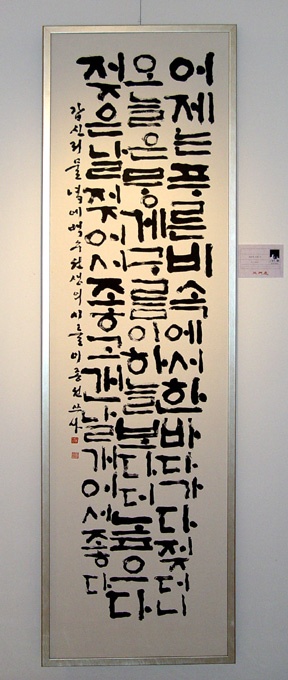 어제는푸른비속에서한바다가다젖더니
오늘은뭉게구름이하늘보다더높으다
젖은날젖어서좋고갠날개어서좋다
갑신저물녘에백수선생의시를이종선